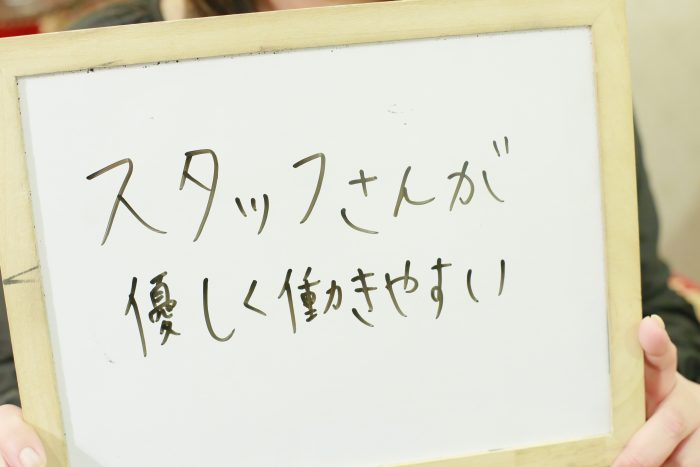 スタッフさんが
優しく働きやすい